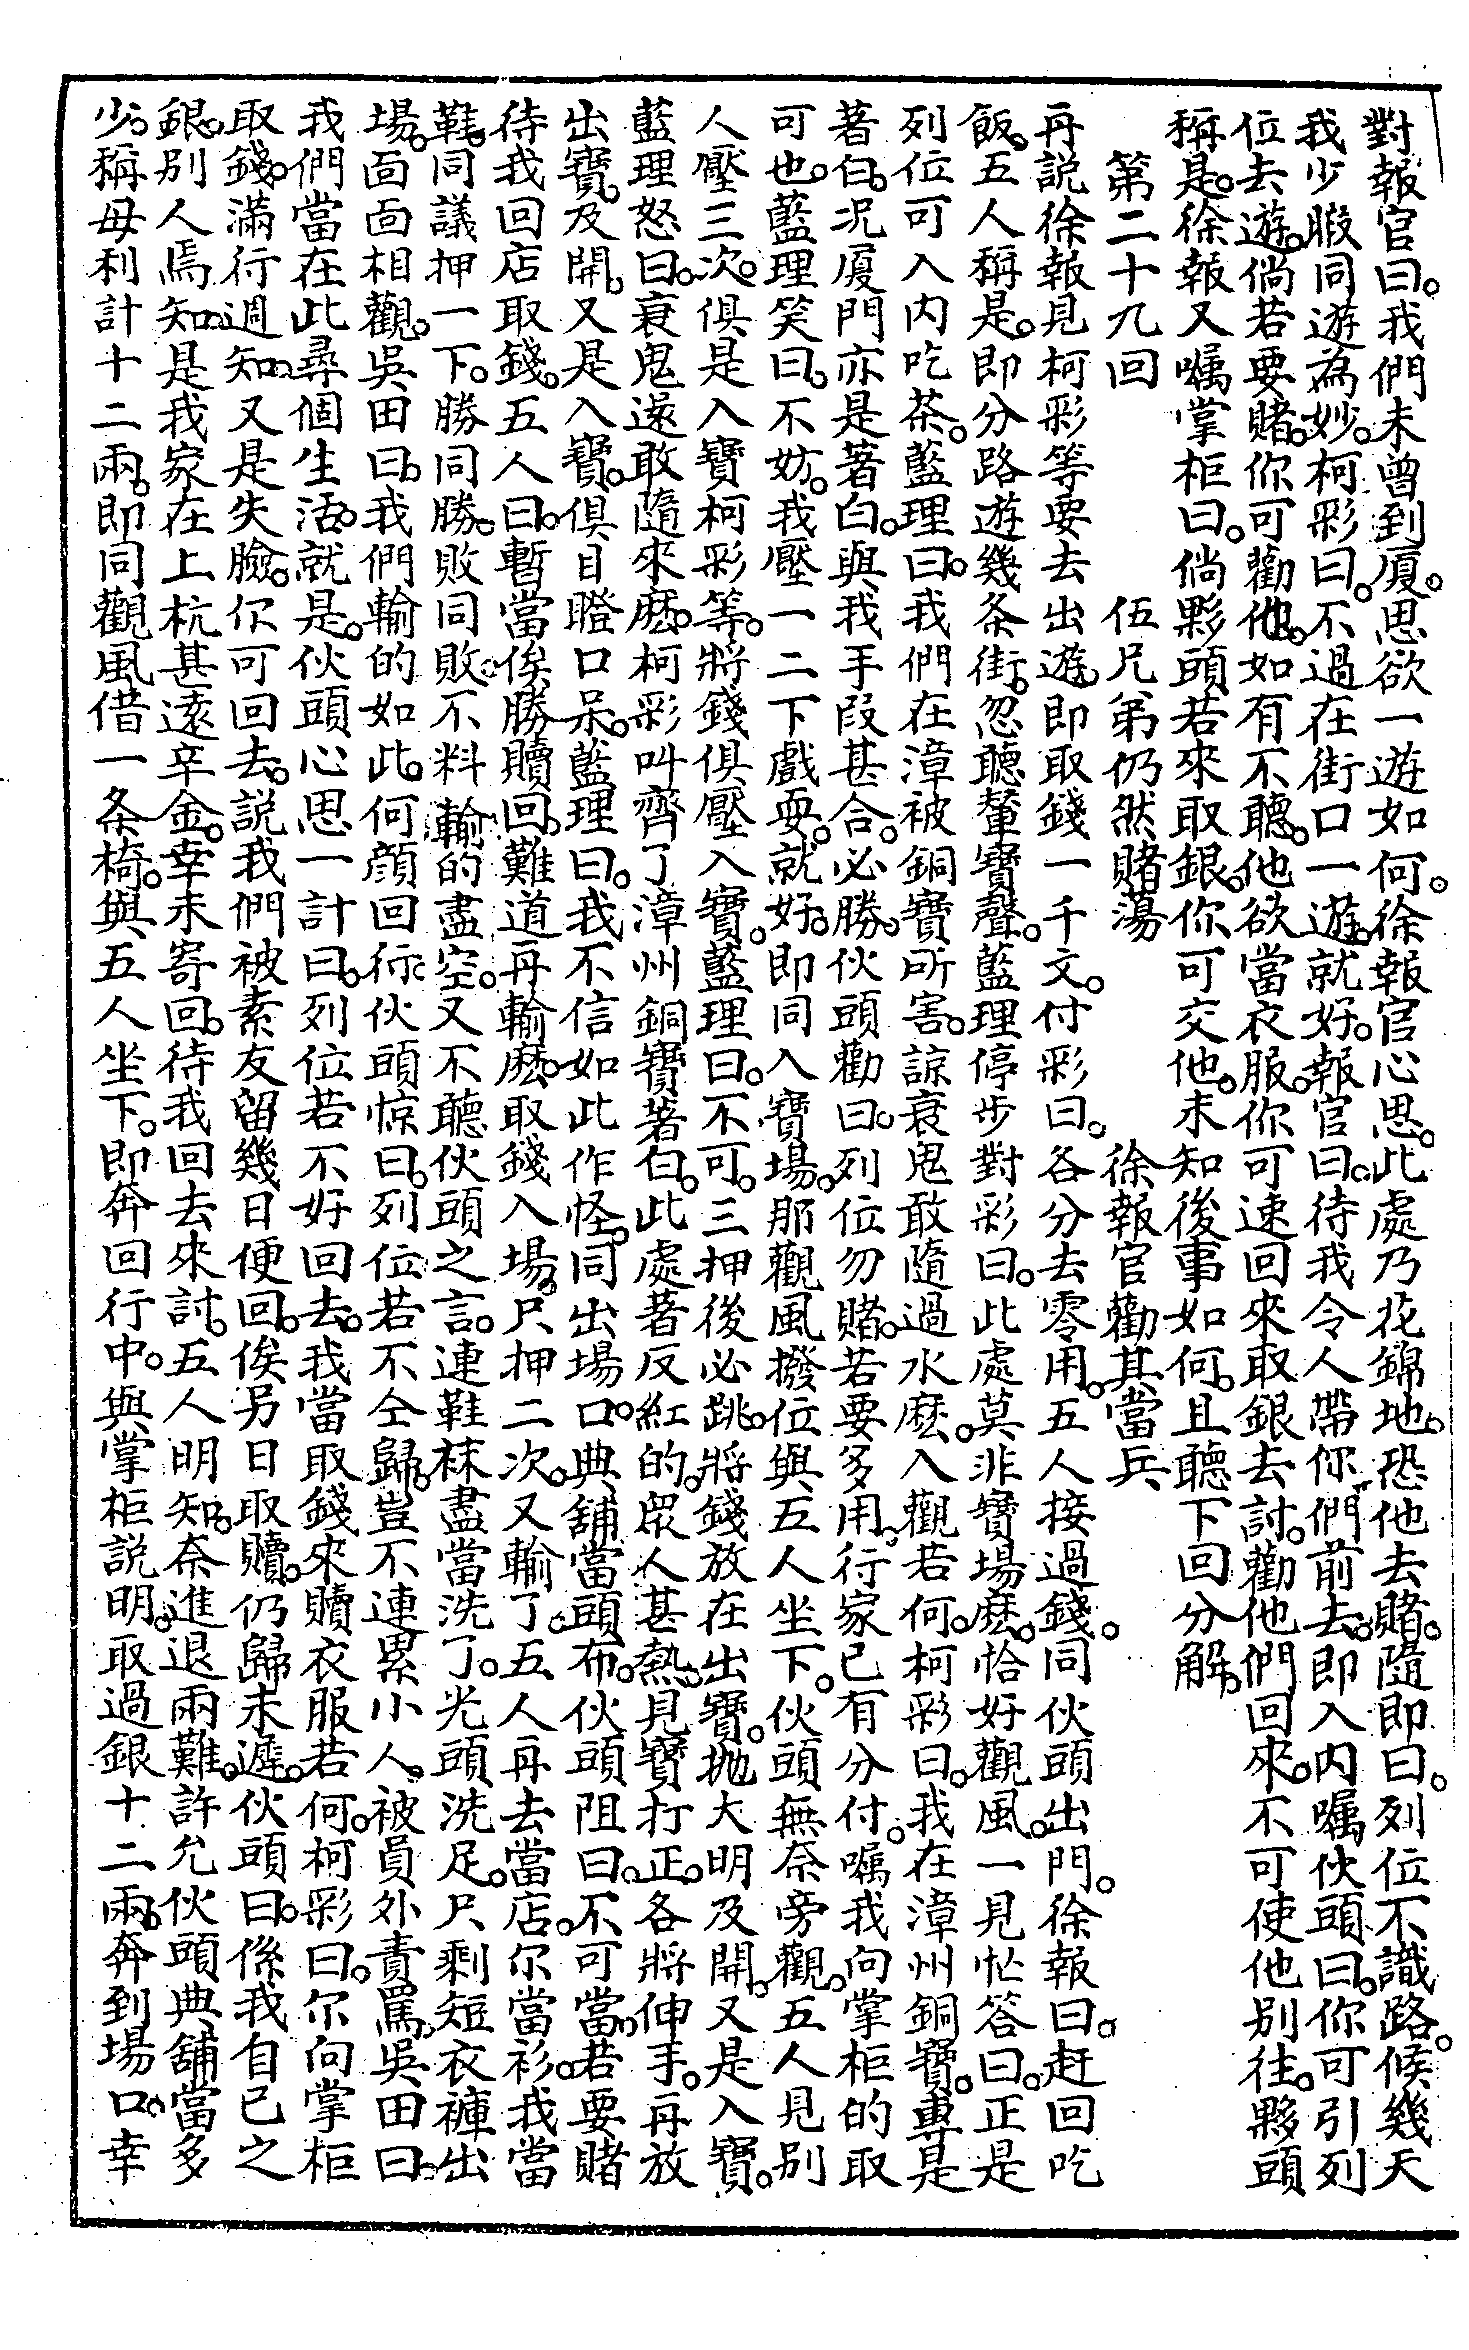 對報官曰。我們未曾到厦。思欲一遊如何。徐報官心思。此處乃花錦地。恐他去賭。隨即曰。列位不識路。候幾天
我少暇同遊為妙。柯彩曰。不過在街口一遊。就好。報官曰。待我令人帶你們前去。即入內囑伙頭曰。你可引列
位去遊。倘若要賭。你可勸他。如有不聽。他欲當衣服。你可速回來取銀去討。勸他們回來。不可使他別往。夥頭
稱是。徐報又囑掌柜曰。倘夥頭若來取銀。你可交他。未知後事如何。且聽下回分解。
第二十九回　伍兄弟仍然賭蕩　徐報官勸其當兵
再説徐報見柯彩等要去出遊。即取錢一千文。付彩曰。各分去零用。五人接過錢。同伙頭出門。徐報曰。赶回吃
飯。五人稱是。即分路遊幾条街。忽聽輦寶聲。藍理停步對彩曰。此處莫非寶場麽。恰好觀風。一見忙答曰。正是
列位可入內吃茶。藍理曰。我們在漳被銅寶所害。諒衰鬼敢隨過水麽。入觀若何。柯彩曰。我在漳州銅寶。專是
著白。况厦門亦是著白。與我手段甚合。必勝。伙頭勸曰。列位勿賭。若要多用。行家已有分付。囑我向掌柜的取
可也。藍理笑曰。不妨。我壓一二下戲耍。就好。即同入寶場。那觀風撥位與五人坐下。伙頭無奈旁觀。五人見別
人壓三次。俱是入寶柯彩等。將錢俱壓入寶。藍理曰。不可。三押後必跳。將錢放在出寶。拋大明及開。又是入寶。
藍理怒曰。衰鬼遠敢隨來麽。柯彩叫齊了漳州銅寶著白。此處著反紅的。眾人甚熱。見寶打正。各將伸手。再放
出寶。及開。又是入寶。俱目瞪口呆。藍理曰。我不信如此作怪。同出場口。典舖當頭布。伙頭阻曰。不可當。若要賭
待我回店取錢。五人曰。暫當俟勝贖回。難道再輸麽。取錢入場。只押二次。又輸了。五人再去當店。尔當衫。我當
鞋。同議押一下。勝同勝。敗同敗。不料輸的盡空。又不聽伙頭之言。連鞋袜盡當洗了。光頭洗足。只剩短衣褲出
場。面面相觀。吳田曰。我們輸的如此。何顔回行。伙頭惊曰。列位若不仝歸。豈不連累小人。被員外責罵。吳田曰。
我們當在此尋個生活。就是。伙頭心思一計曰。列位若不好回去。我當取錢來贖衣服若何。柯彩曰。尔向掌柜
取錢。滿行週知。又是失臉。你可回去。説我們被素友留幾日便回。俟另日取贖。仍歸未遲。伙頭曰。係我自己之
銀。別人焉知。是我家在上杭甚遠辛金。幸未寄回。待我回去來討。五人明知。奈進退兩難。許允伙頭典舖當多
少。稱母利計十二兩。即同觀風借一条椅。與五人坐下。即奔回行中。與掌柜説明。取過銀十二兩。奔到場口。幸